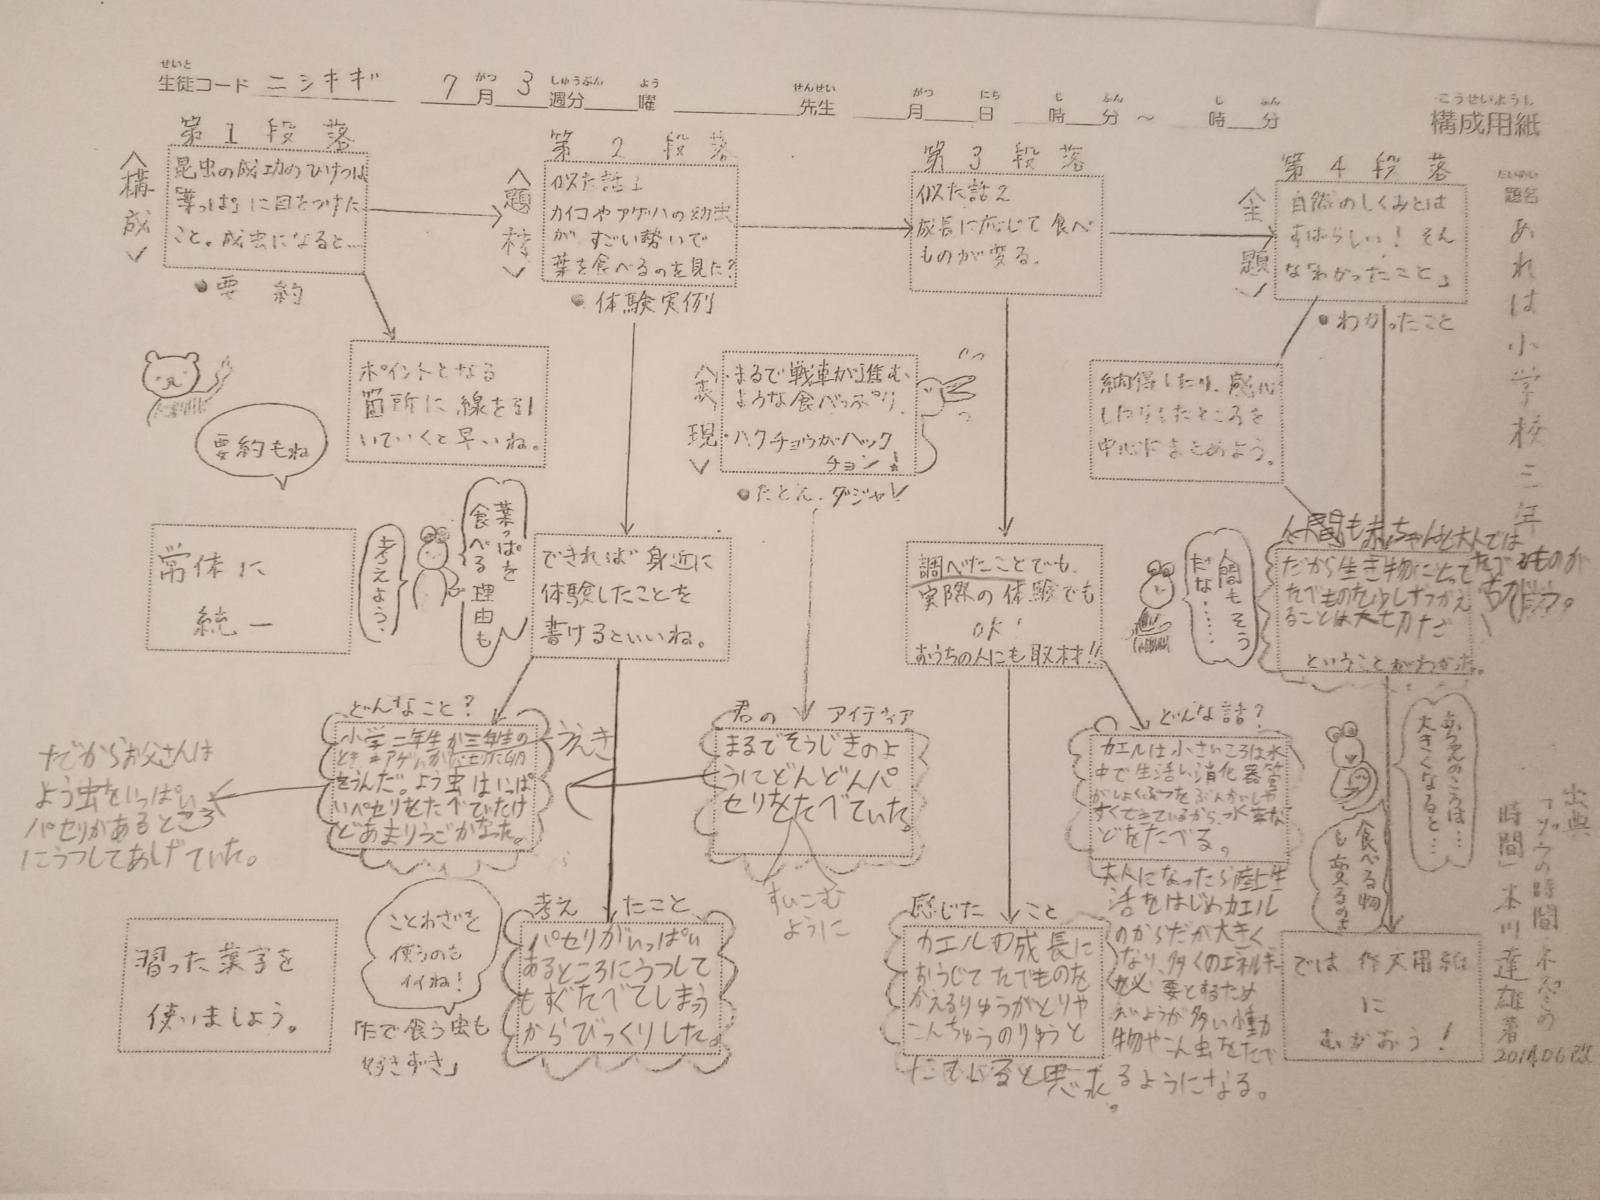 せいと
生徒コード ニシキギ 7月 3週分 曜 先生 月 日 時 分 ～ 時 分
がつ しゅうぶん よう せんせい がつ にち じ ふん じ ふん
こうせいようし
構成用紙
だいめい
題名
あれは小学校二年
第1段落
<構成>
昆虫の成功のひけつは
「葉っぱ」に目をつけた
こと。成虫になると…
●要約
ポイントとなる
箇所に線を引
いていくと早いね。
要約もね
常体に
統一
習った漢字を
使いましょう。
第2段落
<題材>
似た話1
カイコやアゲハの幼虫
が、すごい勢いで
葉を食べるのを見た?
●体験実例
できれば身近に
体験したことを
書けるといいね。
葉っぱを
食べる理由も
考えよう。
どんなこと?
小学二年生か三年生の
とき
をうんだ。よう虫はいっぱ
いパセリをたべていたけ
どあまりうごかなかった。
うえき
だからお父さんは
よう虫をいっぱい
パセリがあるところ
にうつしてあげていた。
考えたこと
パセリがいっぱい
あるところにうつして
もすぐたべてしまう
からびっくりした。
ことわざを
使うのも
イイね!
「たで食う虫も
好きずき」
<表現>
・まるで戦車が進む
ような食べっぷり。
・ハクチョウがハック
チョン!
●たとえ・ダジャレ
君のアイディア
まるでそうじきのよ
うにどんどんパ
セリをたべていた。
すいこむ
ように
第3段落
似た話2
成長に応じて食べ
ものが変る。
調べたことでも、
実際の体験でも
OK!
おうちの人にも取材!!
どんな話?
カエルは小さいころは水
中で生活い消化器管
がしょくぶつをぶんかいしや
すくできているから、水草な
どをたべる。
大人になったら陸上生
活をはじめカエル
のからだが大きく
なり、多くのエネルギー
が必要とするため
えいようが多い小動
物やこん虫をたべ
るようになる。
感じたこと
カエルの成長に
おうじてたべものを
かえるりゆうがとりや
こんちゅうのりゆうと
にていると思う。
第4段落
<主題>
自然のしくみとは
すばらしい! そん
な「わかったこと」
●わかったこと
納得したり、感心
したりしたところを
中心にまとめよう。
人間も赤ちゃんと大人では
たべるものが
ちがう。
だから生き物にとって
たべものを少しずつかえ
ることは大切だ
ということがわかった。
人間もそう
だな……
赤ちゃんのころは…
大きくなると…
食べる物
も変るのよ
では作文用紙
に
むかおう!
出典
「ゾウの時間ネズミの
時間」本川達雄著
2014.06改